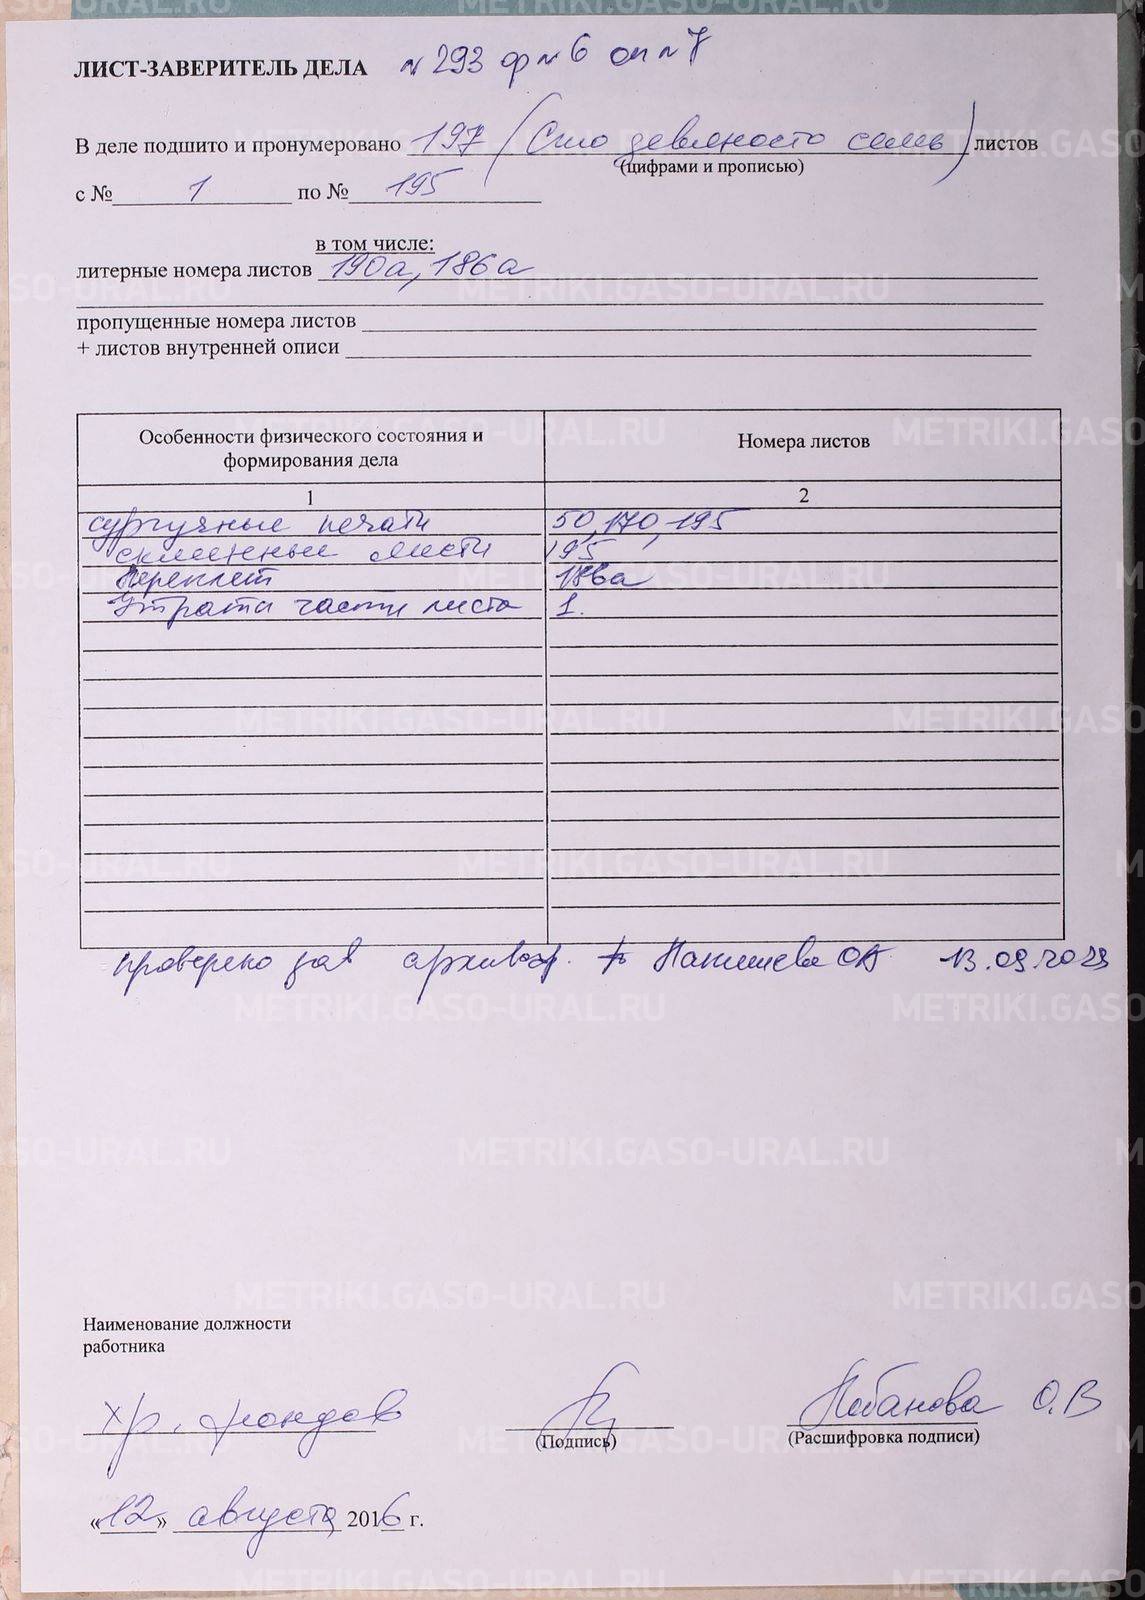 ЛИСТ-ЗАВЕРИТЕЛЬ ДЕЛА № 293 ф № 6 оп № 7
В деле подшито и пронумеровано 197 (Сто девяносто семь) листов
(цифрами и прописью)
с № 1 по № 195
в том числе:
литерные номера листов 190а, 186а
пропущенные номера листов
+ листов внутренней описи
Особенности физического состояния и формирования дела
Номера листов
1 2
сургучные печати 50, 170, 195
склеенные листы 195
Переплет 186а
Утрата части листа 1.
проверено зав архивохр. 13.09.2023
Наименование должности
работника
хр. фондов
(Подпись) (Расшифровка подписи)
О.В
«12» августа 2016 г.
METRIKI.GASO-URAL.RU